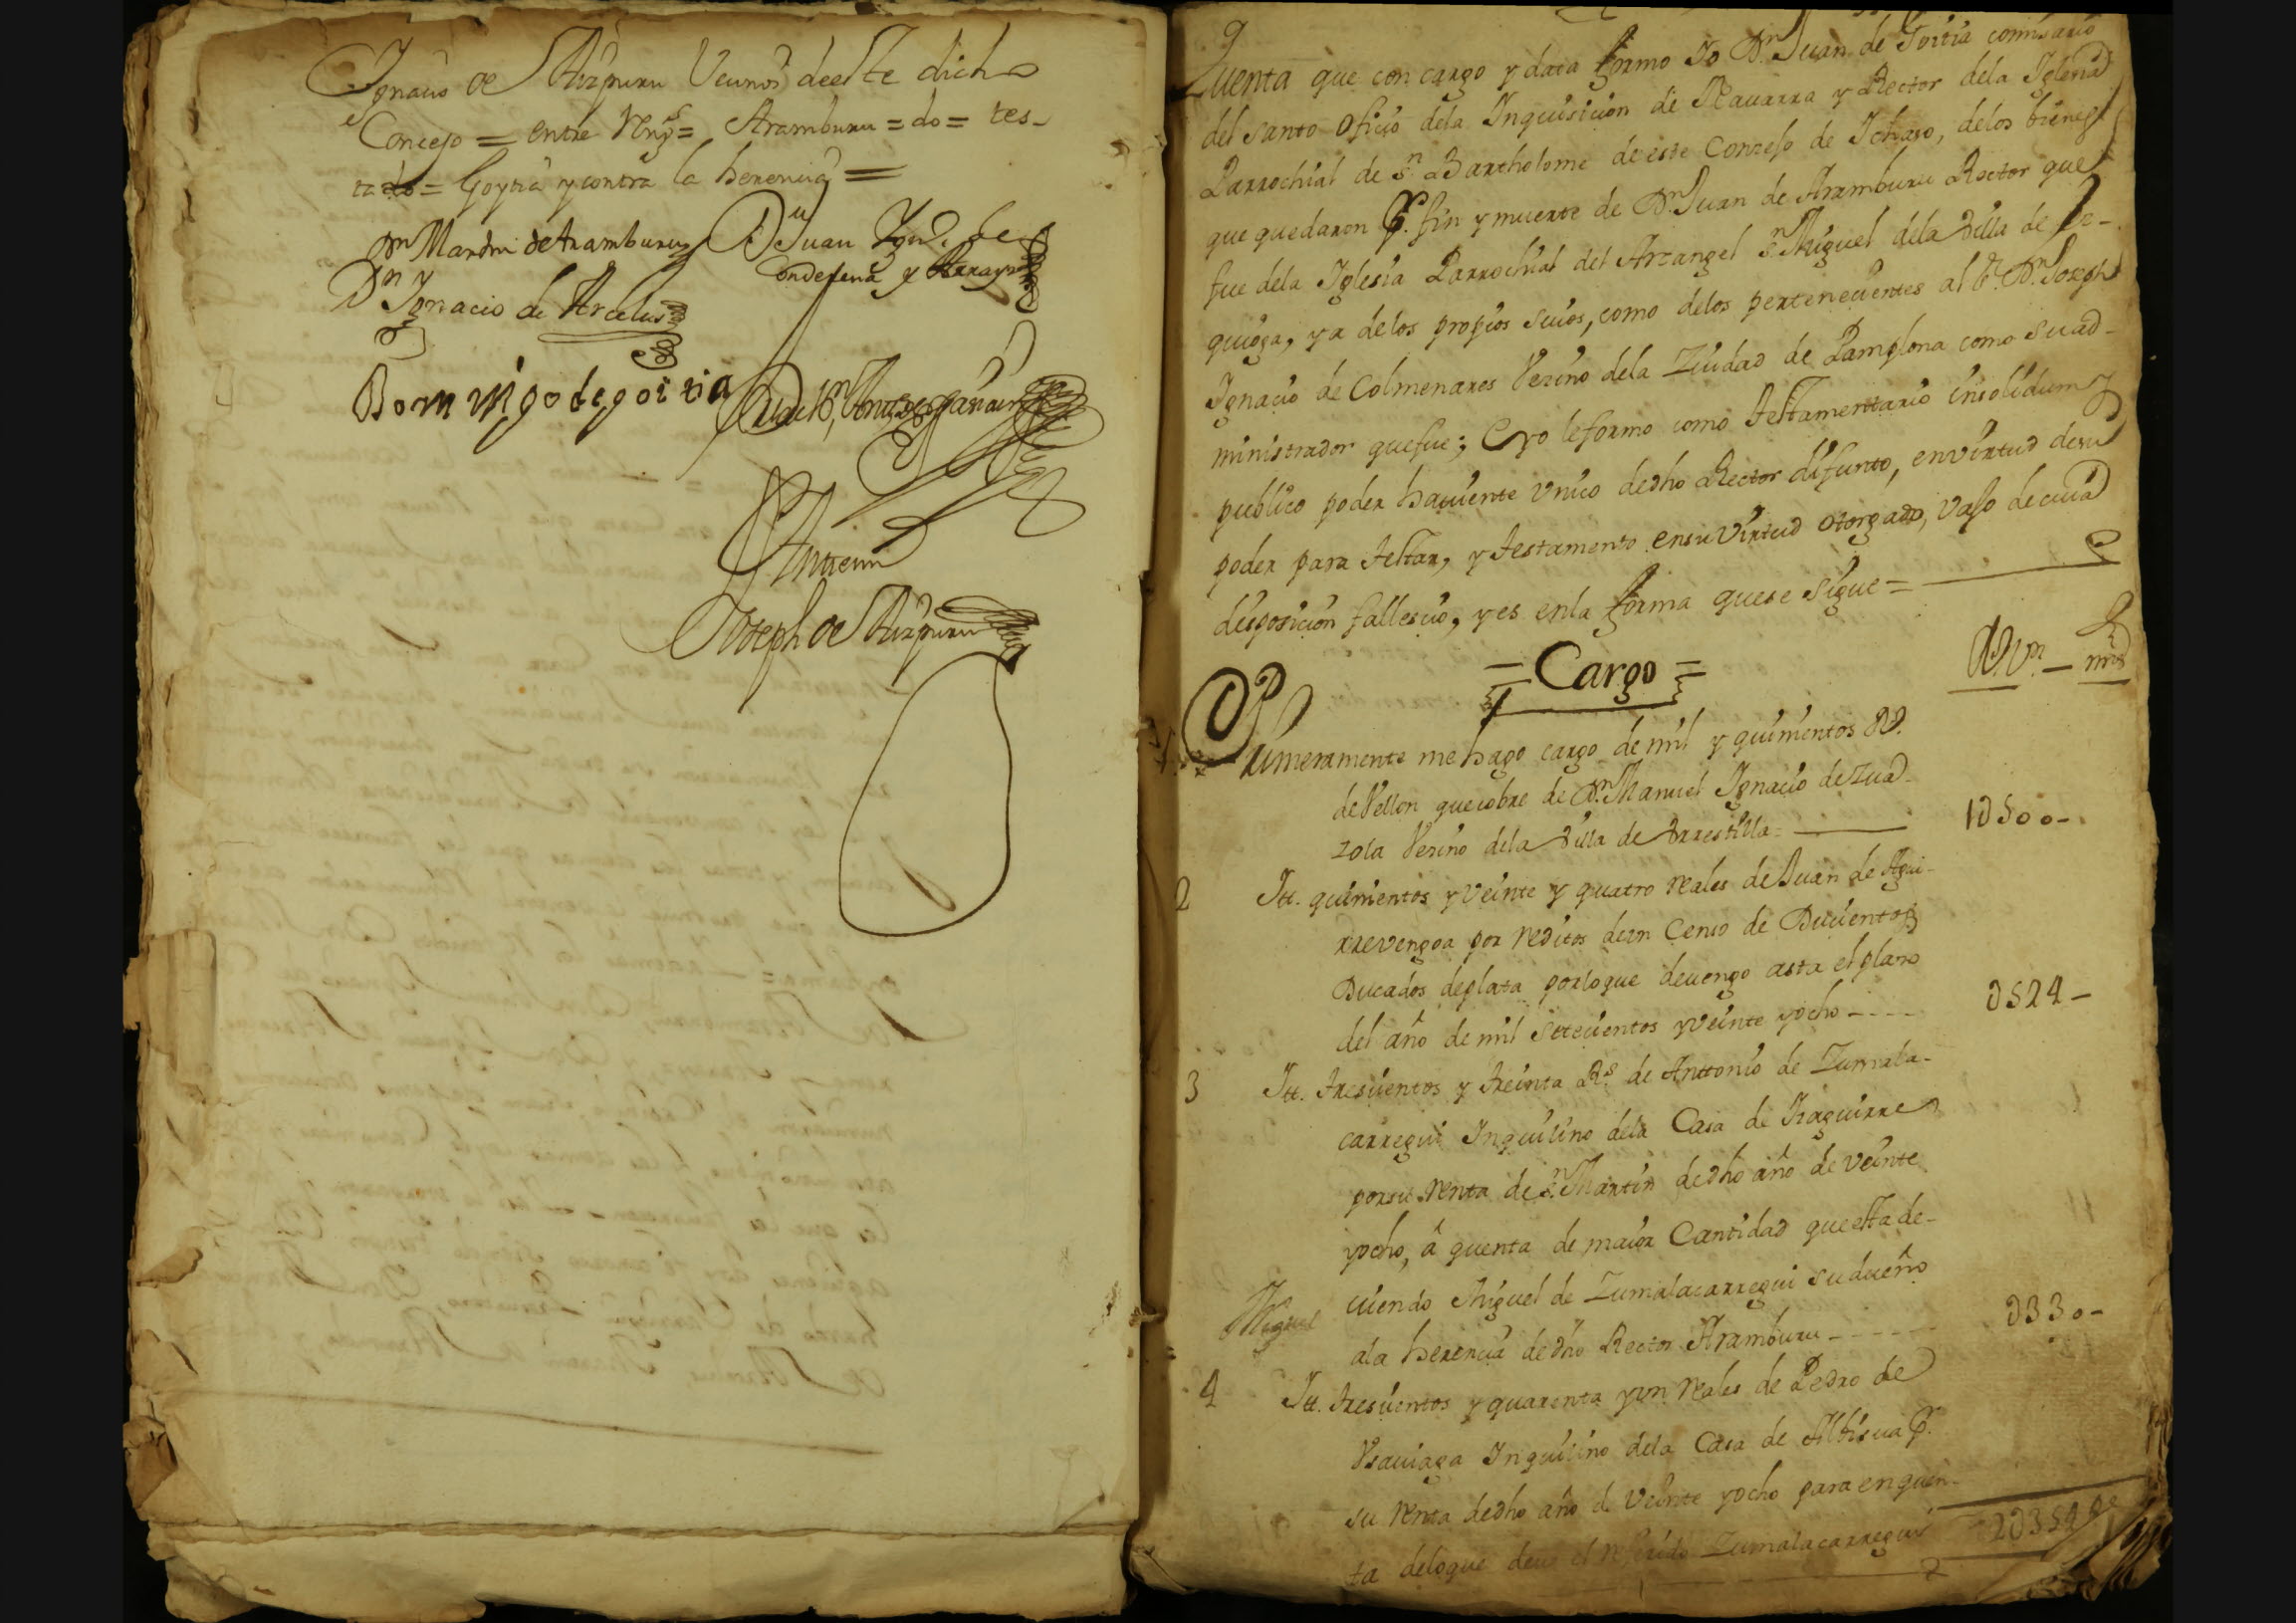 Ignacio de Aizpuru Vecinos deeste dicho
Concejo = entre Rengs = Aramburu = do = tes-
tado = Goytia y contra la herencia =
Dn Martin de Aramburu Dn Juan Ignº de
Condesena y
Dn Ignacio de Arcelus
Domingo de goitia
Anttemi
Joseph de Aizpuru
Quenta que con cargo y data formo Io Dn Juan de Goitia comisario
del santo oficio dela Inquisicion de Nauarra y Rector dela Iglesia
Parrochial de Sn Bartholome de este Conzejo de Ichaso, delos bienes
que quedaron P. fin y muerte de Dn Juan de Aramburu Rector que
fue dela Iglesia Parrochial del Arcangel Sn Miguel dela Villa de Ez-
quioga, ya delos propios suios, como delos pertenecientes al Sr. Dn Joseph
Ignacio de Colmenares Vezino dela Ziudad de Pamplona como su ad-
ministrador quefue; Cyo leformo como testamentario insolidum y
publico poder haviente Vnico dedho Rector difunto, envirtud desu
poder para testar, y testamento ensu Virtud otorgado, vajo de cuia
disposicion fallescio, yes enla forma quese sigue =
= Cargo =
Rs Vn. – mrs
Primeramente me hago cargo de mil y quinientos RR.
deVellon quecobre de Dn Manuel Ignacio de Zua-
zola Vezino dela Villa de Urrestilla
1U500-
2 Itt. quinientos y veinte y quatro reales de Juan de Agui-
rrevengoa por reditos deun Censo de Ducientos
Ducados deplata porloque devengo asta elplazo
del año de mil setecientos y veinte yocho
U524 –
3 Itt. trescientos y treinta Rs. de Anttonio de Zumala-
carregui Inquilino dela Casa de Izaguirre
porsu renta de Sn Martin dedho año de veinte
yocho, â quenta de maior Cantidad queesta de-
uiendo Miguel de Zumalacarregui su dueño
Miguel
ala herencia dedho Rector Aramburu
U330-
4 Itt. trescientos y quarenta yun reales de Pedro de
Vsauiaga Inquilino dela Casa de Albisua P.
su renta dedho año de Veinte yocho para enquen-
ta deloque deue el referido Zumalacarregui
2U354